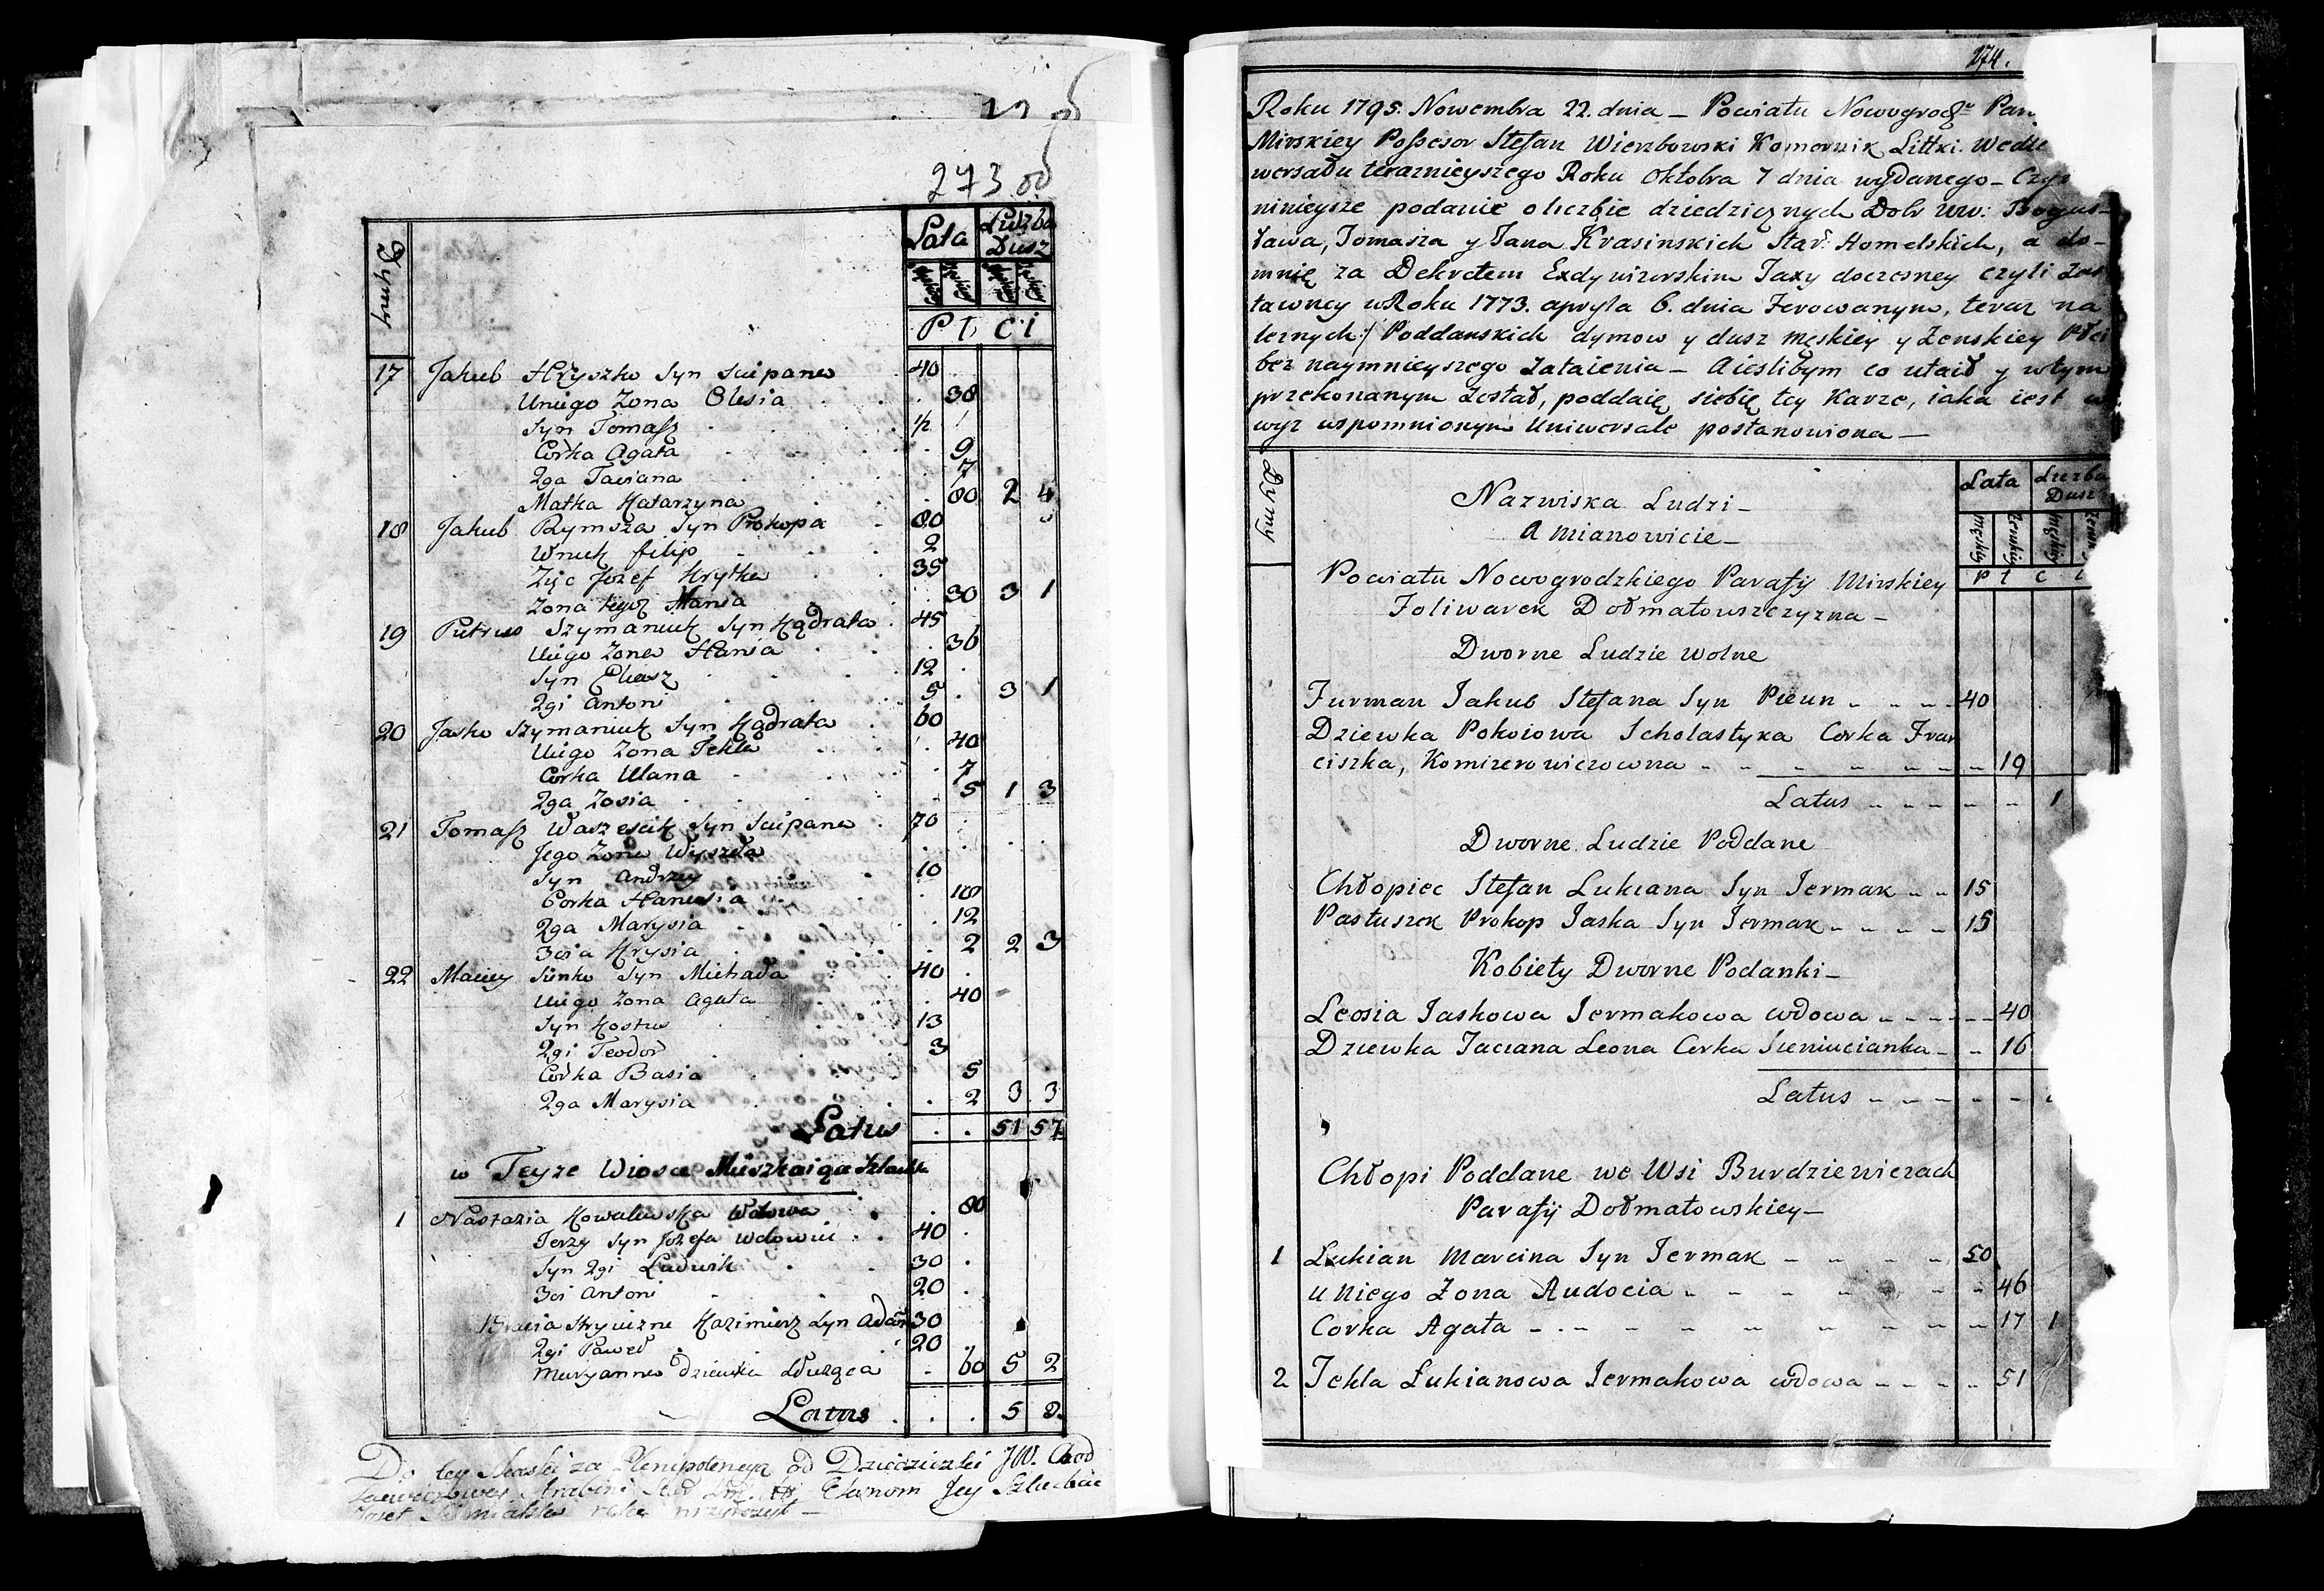 273
Dymy
Lata Liczba Dusz
Męskiey Żeńskiey Męskiey Żeńskiey
P ł c i
17 Jakub Hryszko Syn Sciepana 40
Uniego Zona Olesia 38
Syn Tomasz 1/2
Corka Agata 9
2ga Taciana 7
Matka Katarzyna 80 2 4
18 Jakub Rymsza Syn Prokopa 80
Wnuk filip 2
Zięc Jozef Hrytka 35
Zona tegoż Mania 30 3 1
19 Petrus Szymaniuk Syn Kądrata 45
Uniego Zona Hania 36
Syn Eliasz 12
2gi Antoni 5 3 1
20 Jasko Szymaniuk Syn Kądrata 60
Uniego Zona Tekla 40
Corka Ulana 7
2ga Zosia 5 1 3
21 Tomasz Waszescik Syn Sciepana 70
Jego Zona Wyszeła
Syn Andrzey 10
Corka Hanusia 18
2ga Marysia 12
3cia Krysia 2 2 3
22 Maciey Sinko Syn Michała 40
Uniego Zona Agata 40
Syn Kostus 13
2gi Teodor 3
Corka Basia 5
2ga Marysia 2 3 3
Latus 51 57
w Teyze Wiosce Mieszkaiąca Szlachta
1 Nastazia Kowalewska Wdowa 80
Jerzy Syn Jozefa Wdowiei 40
Syn 2gi Ludwik 30
3ci Antoni 20
Bracia stryieczne Kazimierz Syn Adama 30
2gi Paweł 20
Maryanna Dziewka służąca 60 5 2
Latus 5 2
Do tey Skaski za Plenipotencyą od Dziedziczki JW. Chod
Ekonom Jey Szlachcic
274.
Roku 1795. Nowembra 22. dnia – Powiatu Nowogrodz Par
Mirskiey Possesor Stefan Wierzbowski Komornik Littki. Wedle
wersału teraznieyszego Roku Oktobra 7 dnia wydanego – Czy
ninieysze podanie o liczbie dziedzicznych Dobr WW: Bogus-
ława, Tomasza y Jana Krasinskich Star: Homelskich, a do-
mnię za Dekretem Exdywizorskim Taxy doczesney czyli Zas
tawney w Roku 1773. apryla 6. dnia Ferowanym, teraz na
leznych:/ Poddanskich dymow y dusz męskiey y Zenskiey Płci
bez naymnieyszego Zataienia – Aieslibym co utaił y wtym
przekonanym Został, poddaię siebię tey Karze, iaka iest w
wyz wspomnionym Uniwersale postanowiona –
Dymy
Nazwiska Ludzi –
A mianowicie –
Lata Liczba Dusz
Męskiey Zenskiey Męskiey Zensk
P ł c i
Powiatu Nowogrodzkiego Parafij Mirskiey
Foliwarek Dołmatowszczyzna –
Dworne Ludzie Wolne
Furman Jakub Stefana Syn Pieun 40
Dziewka Pokoiowa Scholastyka Corka Fran
ciszka, Komizerowiczowna 19
Latus 1
Dworne Ludzie Poddane
Chłopiec Stefan Lukiana Syn Jermak 15
Pastuszek Prokop Jaska Syn Jermak 15
Kobiety Dworne Podanki –
Leosia Jaskowa Jermakowa wdowa 40
Dziewka Taciana Leona Corka Sieniucianka 16
Latus
Chłopi Poddane we Wsi Burdziewiczach
Parafij Dołmatowskiey –
1 Lukian Marcina Syn Jermak 50
u Niego Zona Audocia 46
Corka Agata 17 1
2 Tekla Lukianowa Jermakowa wdowa 51